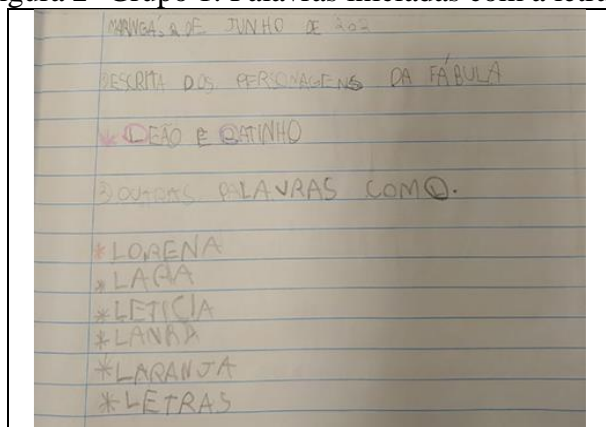 MARINGÁ, 2 DE JUNHO DE 202
ESCRITA DOS PERSONAGENS DA FÁBULA
* LEÃO E RATINHO
3) OUTRAS PALAVRAS COM L.
* LORENA
* LARA
* LETICIA
* LANRA
* LARANJA
* LETRAS